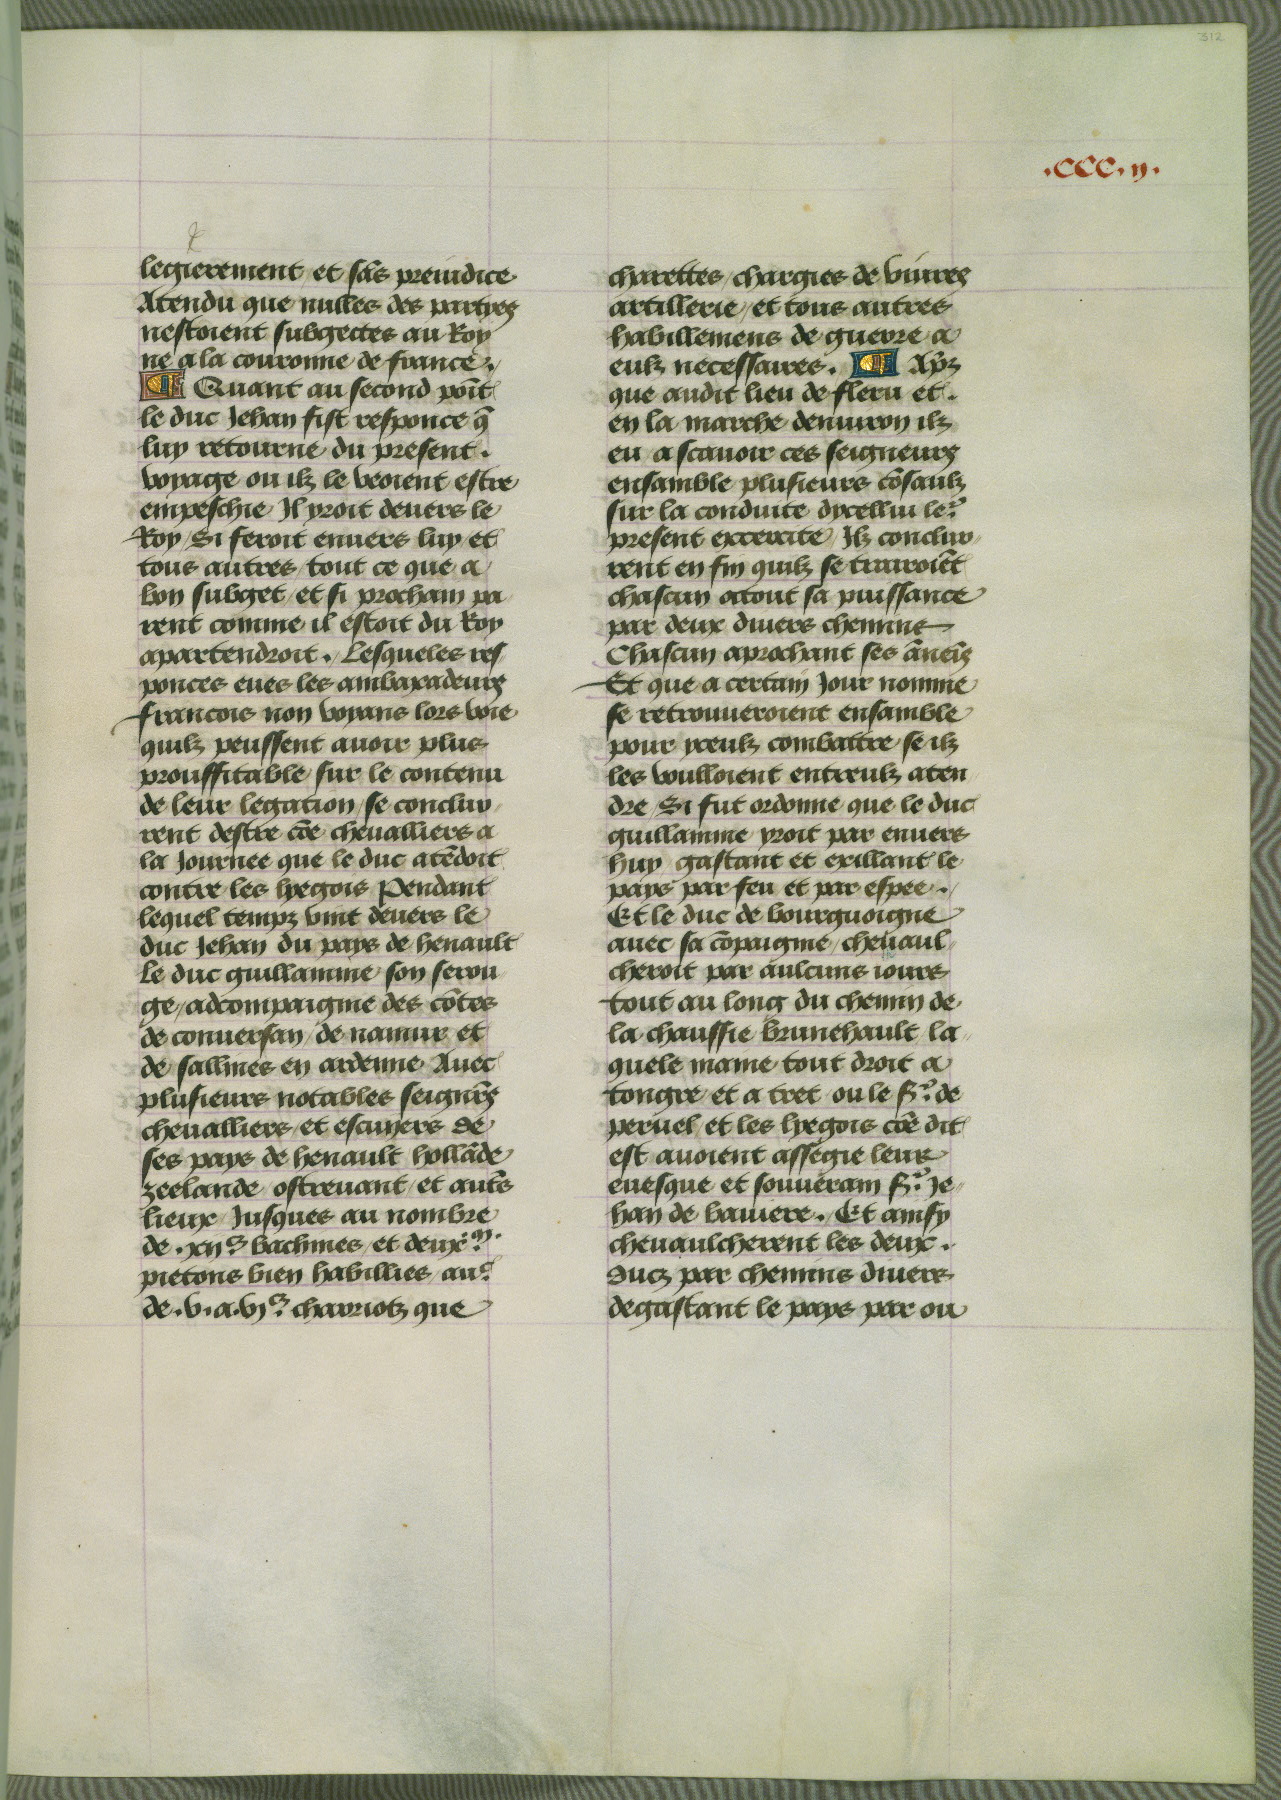 312
.CCC.ij.
legierement et sãs preiudice
Atendu que nulles des partyes
nestoient subgectes au Roy
ne a la couronne de france.
Quant au second põit
le duc Jehan fist responce q̃
luy retourne du present.
voyage ou ilz le veoient estre
empeschie Il yroit deuers le
Roy / Si feroit enuers luy et
tous autres tout ce que a
bon subget et si prochain pa
rent comme il estoit du Roy
apartendroit. Lesqueles res
ponces eues les ambaxadeurs
francois non voyans lors voie
quilz peussent auoir plus
prouffitable sur le contenu
de leur legation / se conclur
rent destre cõe cheualliers a
la Journee que le duc atẽdoit
contre les lyegois Pendant
lequel tempz vint deuers le
duc Jehan du pays de henault
le duc guillamme son serou
ge / adcompaignie des cõtes
de conuersan / de namur et
de sallmes en ardenne Auec
plusieurs notables seignr̃s
cheualliers et escuyers de
ses pays de henault hollãde
zeelande / ostreuant / et autr̃s
lieux Jusques au nombre
de .xijᶜ bachines et deux.ᵐ.
pietons bien habillies / auᶜ
de .v. a .vjᶜ charriotz que
charettes / chargies de viures
artillerie / et tous autres
habillemens de guerre a
eulz necessaires. Aprz̃
que audit lieu de fleru et.
en la marche denuiron ilz
eu a scauoir ces seigneurs
ensamble plusieurs cõsaulz
sur la conduite dycellui le.ᵉ
present excercite / Ilz conclur
rent en fin quilz se trairoiẽt
chascun atout sa puissance
par deux diuers chemins
Chascun aprochant ses ãnem̃s
Et que a certain Jour nomme
se retrouueroient ensamble
pour yceulz combattre se ilz
les voulloient entreulz aten
dre / Si fut ordonne que le duc
guillamme yroit par enuers
huy gastant et exillant le
pays par feu et par espee.
Et le duc de bourguoigne
auec sa cõpaignie / cheuaul
cheroit par aulcuns iours
tout au long du chemin de
la chaussie brunehault la
quele maine tout droit a
tongre et a tret ou le sʳ. de
peruel et les lyegois cõe dit
est auoient assegie leur
euesque et souuerain sʳ. Je
han de bauiere. Et ainsy
cheuaulcherent les deux.
Ducz par chemins diuers
degastant le pays par ou